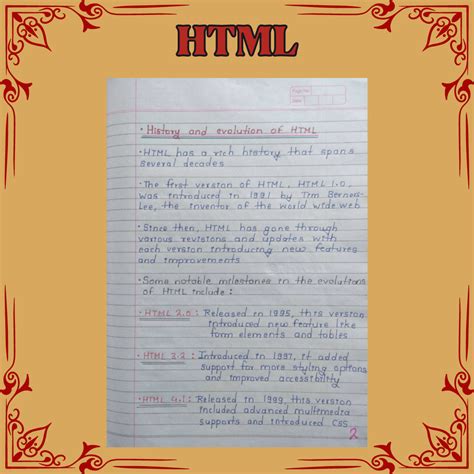 HTML
Page No.
Date
• History and evolution of HTML
• HTML has a rich history that spans
several decades
• The first version of HTML, HTML 1.0,
was introduced in 1991 by Tim Berners-
Lee, the inventor of the world wide web
• Since then, HTML has gone through
various revisions and updates with
each version introducing new features
and improvements
• Some notable milestones in the evolutions
of HTML include :
• HTML 2.0 : Released in 1995, this version
introduced new feature like
form elements and tables
• HTML 3.2 : Introduced in 1997, it added
support for more styling options
and improved accessibility
• HTML 4.1 : Released in 1999, this version
included advanced multimedia
supports and introduced CSS
2